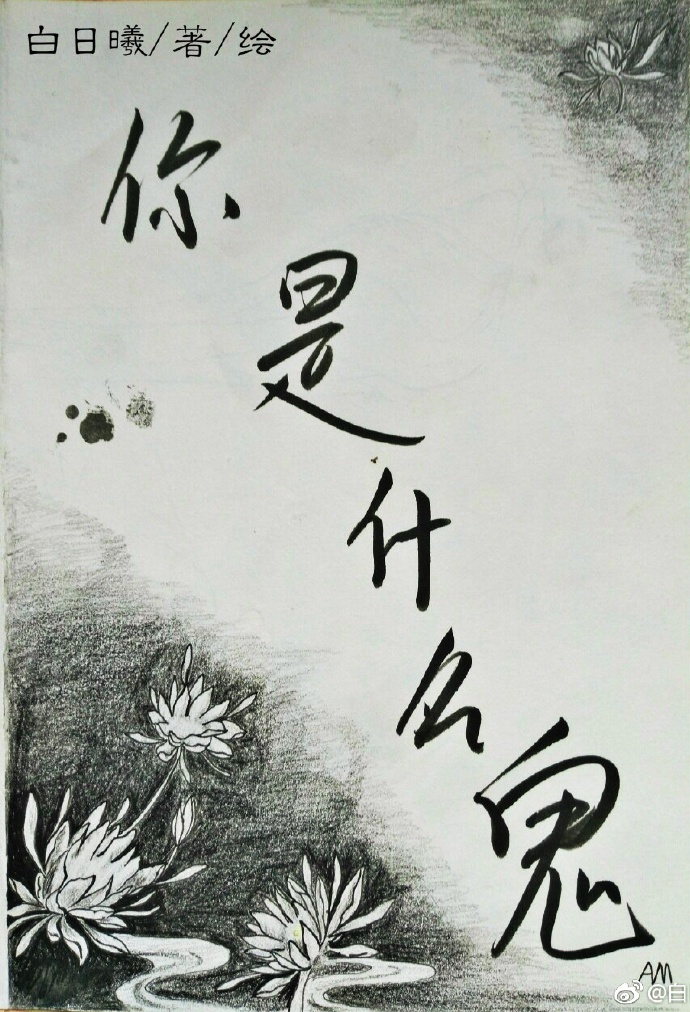 白日曦/著/绘
你是什么鬼
AM
@白